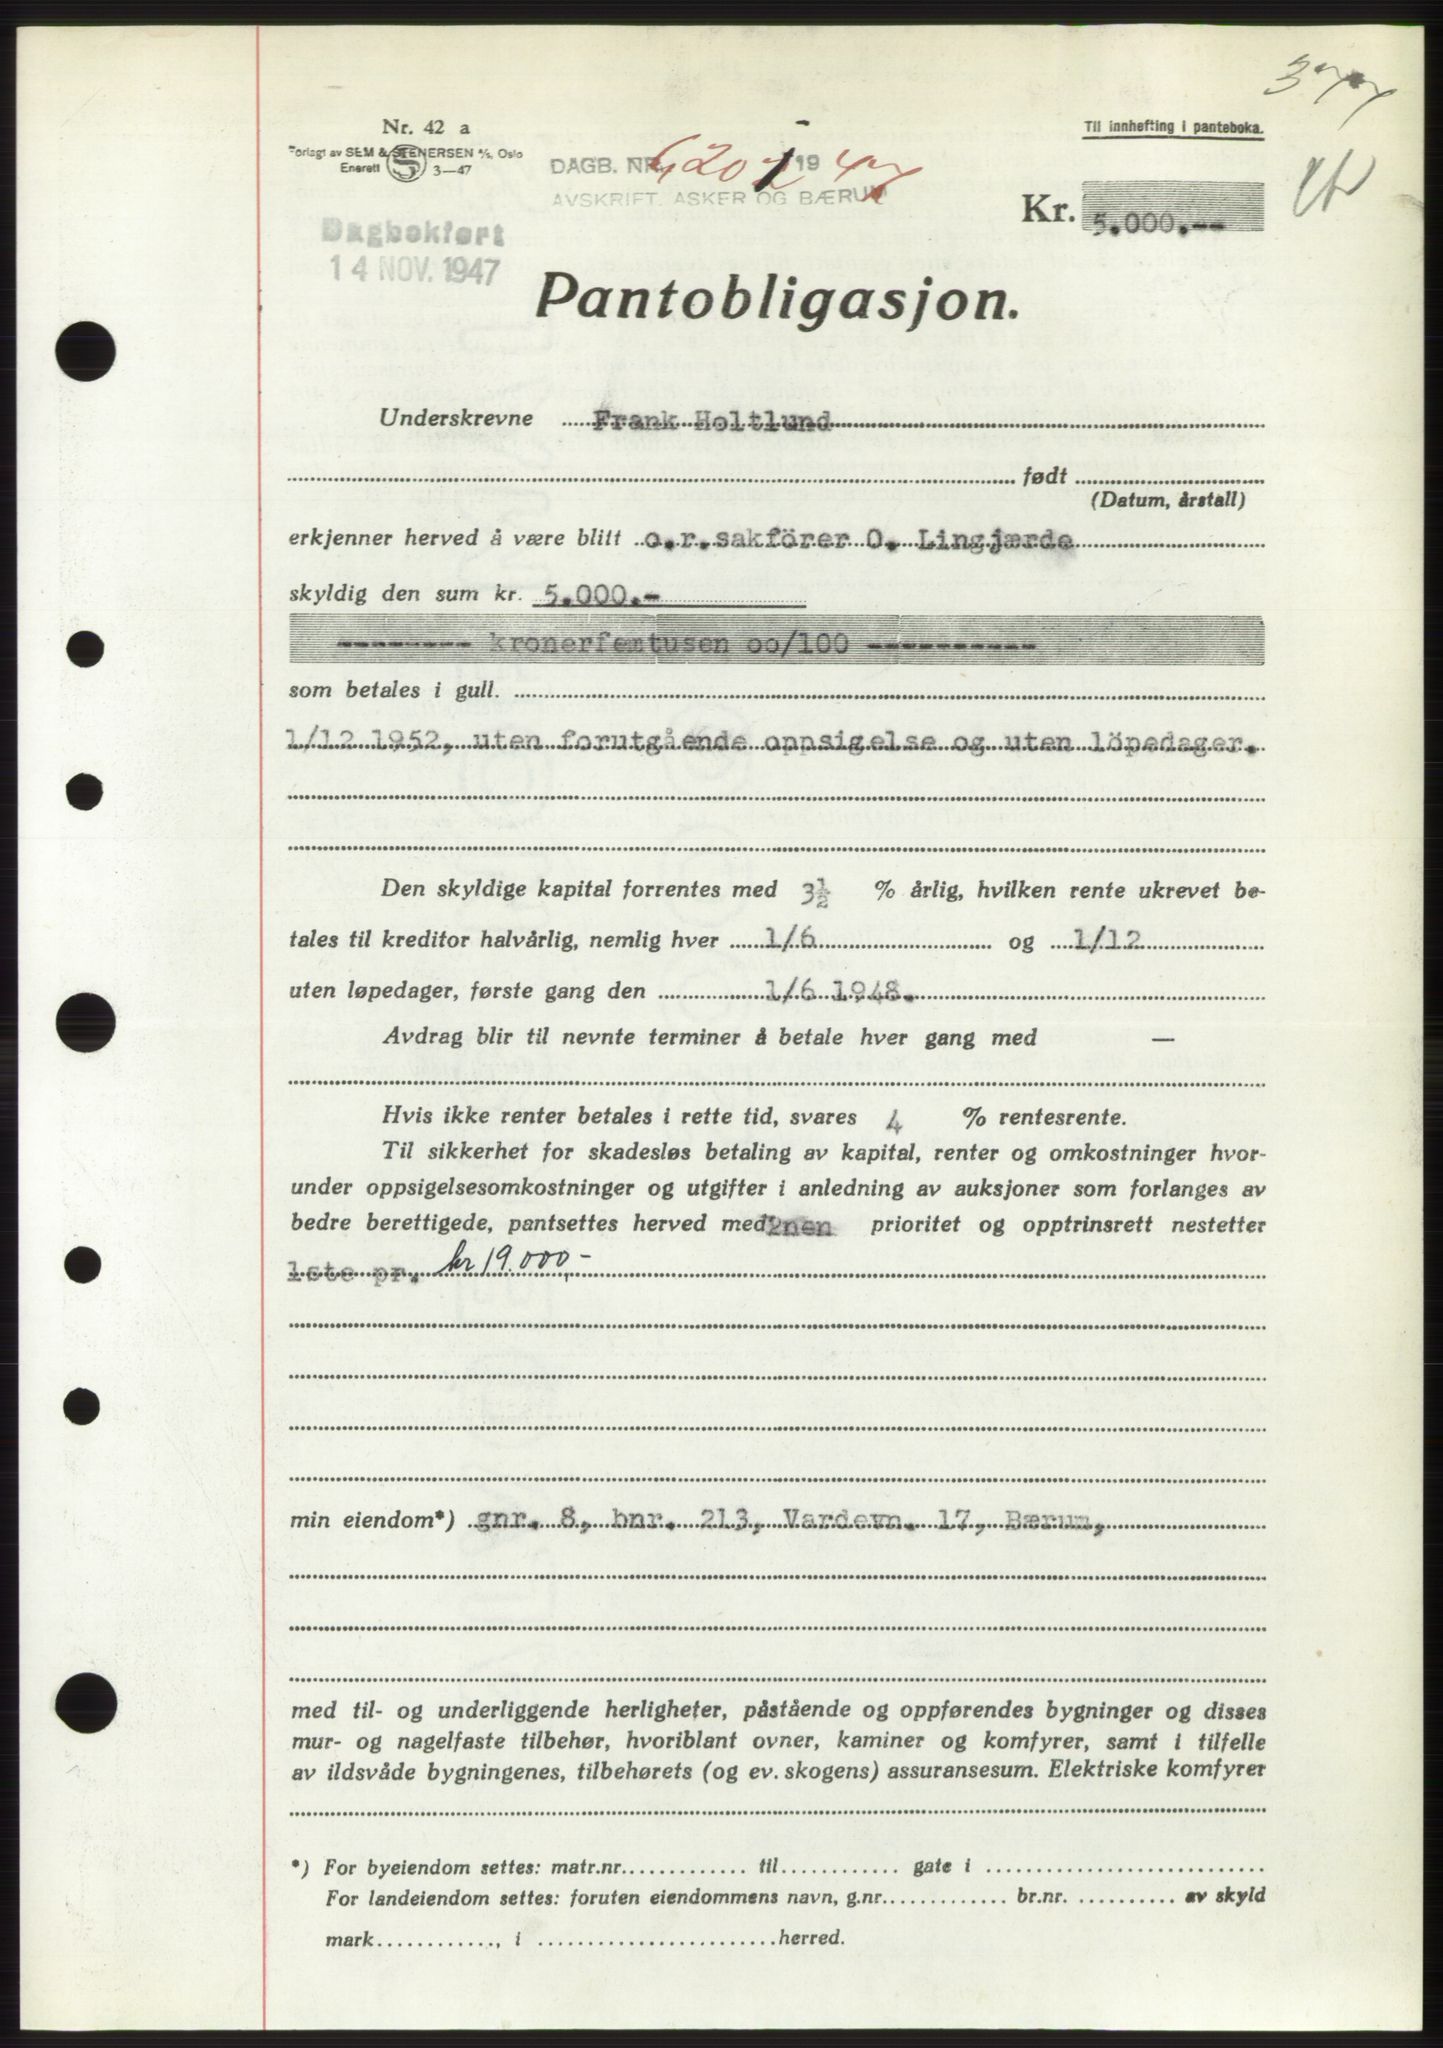 377
Nr. 42 a
Forlagt av SEM & STENERSEN A/S, Oslo
Enerett 3—47
Til innhefting i panteboka.
DAGB. NR. 6201 1947
AVSKRIFT. ASKER OG BÆRUM
Kr. 5.000.--
Dagbokført
14 NOV. 1947
Pantobligasjon.
Underskrevne Frank Holtlund
født
(Datum, årstall)
erkjenner herved å være blitt o.r.sakförer O. Lingjærde
skyldig den sum kr. 5.000.-
-------- kronerfemtusen oo/100 ----------
som betales i gull.
1/12 1952, uten forutgående oppsigelse og uten löpedager.
Den skyldige kapital forrentes med 3½ % årlig, hvilken rente ukrevet be-
tales til kreditor halvårlig, nemlig hver 1/6 og 1/12
uten løpedager, første gang den 1/6 1948.
Avdrag blir til nevnte terminer å betale hver gang med —
Hvis ikke renter betales i rette tid, svares 4 % rentesrente.
Til sikkerhet for skadesløs betaling av kapital, renter og omkostninger hvor-
under oppsigelsesomkostninger og utgifter i anledning av auksjoner som forlanges av
bedre berettigede, pantsettes herved med 2nen prioritet og opptrinsrett nestetter
1ste pr. kr 19.000,-
min eiendom*) gnr. 8, bnr. 213, Vardevn. 17, Bærum,
med til- og underliggende herligheter, påstående og oppførendes bygninger og disses
mur- og nagelfaste tilbehør, hvoriblant ovner, kaminer og komfyrer, samt i tilfelle
av ildsvåde bygningenes, tilbehørets (og ev. skogens) assuransesum. Elektriske komfyrer
*) For byeiendom settes: matr.nr............. til............ gate i ............................
For landeiendom settes: foruten eiendommens navn, g.nr............. br.nr. .......... av skyld
mark............, i ........................herred.